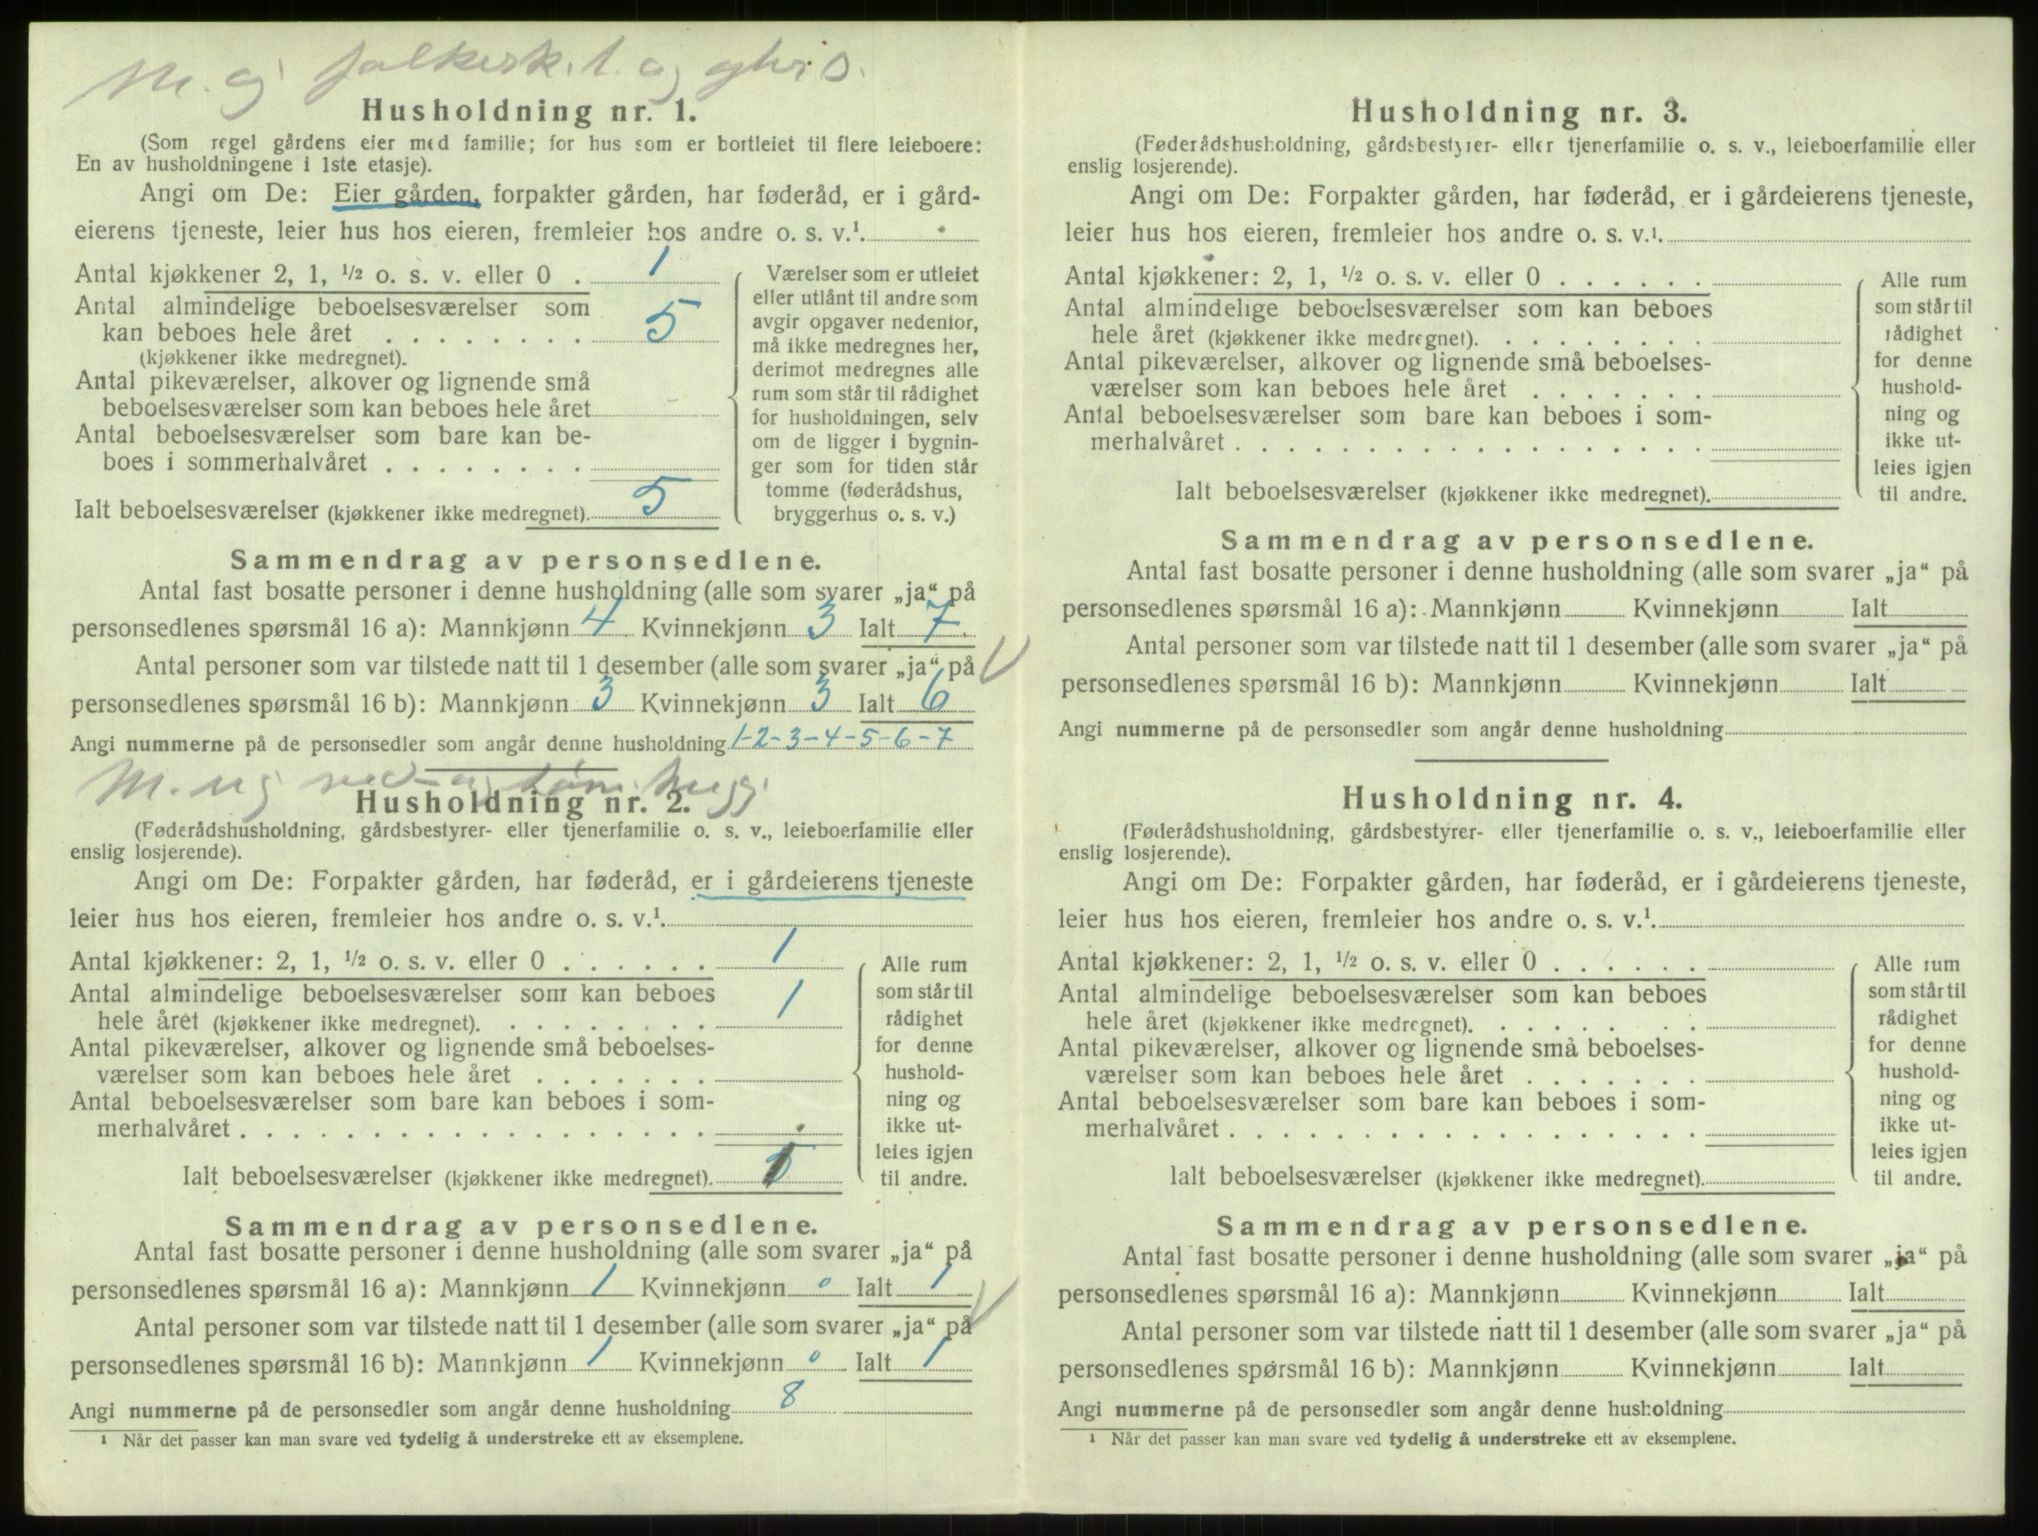 M. og folkesk. l. og
Husholdning nr. 1.
(Som regel gårdens eier med familie; for hus som er bortleiet til flere leieboere:
En av husholdningene i 1ste etasje).
Angi om De: Eier gården, forpakter gården, har føderåd, er i gård-
eierens tjeneste, leier hus hos eieren, fremleier hos andre o. s. v.¹.
Antal kjøkkener 2, 1, ½ o. s. v. eller 0 . 1
Antal almindelige beboelsesværelser som
kan beboes hele året . . . . . . . . 5
(kjøkkener ikke medregnet).
Antal pikeværelser, alkover og lignende små
beboelsesværelser som kan beboes hele året
Antal beboelsesværelser som bare kan be-
boes i sommerhalvåret . . . . . . . .
Ialt beboelsesværelser (kjøkkener ikke medregnet). 5
Værelser som er utleiet
eller utlånt til andre som
avgir opgaver nedenfor,
må ikke medregnes her,
derimot medregnes alle
rum som står til rådighet
for husholdningen, selv
om de ligger i bygnin-
ger som for tiden står
tomme (føderådshus,
bryggerhus o. s. v.)
Sammendrag av personsedlene.
Antal fast bosatte personer i denne husholdning (alle som svarer „ja“ på
personsedlenes spørsmål 16 a): Mannkjønn 4 Kvinnekjønn 3 Ialt 7
Antal personer som var tilstede natt til 1 desember (alle som svarer „ja“ på
personsedlenes spørsmål 16 b): Mannkjønn 3 Kvinnekjønn 3 Ialt 6
Angi nummerne på de personsedler som angår denne husholdning 1-2-3-4-5-6-7
M. ug ved- og tøm.hugg
Husholdning nr. 2.
(Føderådshusholdning, gårdsbestyrer- eller tjenerfamilie o. s. v., leieboerfamilie eller
enslig losjerende).
Angi om De: Forpakter gården, har føderåd, er i gårdeierens tjeneste
leier hus hos eieren, fremleier hos andre o. s. v.¹.
Antal kjøkkener: 2, 1, ½ o. s. v. eller 0 . . . . . . 1
Antal almindelige beboelsesværelser som kan beboes
hele året (kjøkkener ikke medregnet). . . . . . . . . 1
Antal pikeværelser, alkover og lignende små beboelses-
værelser som kan beboes hele året . . . . . . .
Antal beboelsesværelser som bare kan beboes i som-
merhalvåret . . . . . . . . . . . . . . . . . .
Ialt beboelsesværelser (kjøkkener ikke medregnet). 1
Alle rum
som står til
rådighet
for denne
hushold-
ning og
ikke ut-
leies igjen
til andre.
Sammendrag av personsedlene.
Antal fast bosatte personer i denne husholdning (alle som svarer „ja“ på
personsedlenes spørsmål 16 a): Mannkjønn 1 Kvinnekjønn 0 Ialt 1
Antal personer som var tilstede natt til 1 desember (alle som svarer „ja“ på
personsedlenes spørsmål 16 b): Mannkjønn 1 Kvinnekjønn 0 Ialt 1
Angi nummerne på de personsedler som angår denne husholdning 8
¹ Når det passer kan man svare ved tydelig å understreke ett av eksemplene.
Husholdning nr. 3.
(Føderådshusholdning, gårdsbestyrer- eller tjenerfamilie o. s. v., leieboerfamilie eller
enslig losjerende).
Angi om De: Forpakter gården, har føderåd, er i gårdeierens tjeneste,
leier hus hos eieren, fremleier hos andre o. s. v.¹.
Antal kjøkkener: 2, 1, ½ o. s. v. eller 0 . . . . . .
Antal almindelige beboelsesværelser som kan beboes
hele året (kjøkkener ikke medregnet). . . . . . . . .
Antal pikeværelser, alkover og lignende små beboelses-
værelser som kan beboes hele året . . . . . . .
Antal beboelsesværelser som bare kan beboes i som-
merhalvåret . . . . . . . . . . . . . . . . . .
Ialt beboelsesværelser (kjøkkener ikke medregnet).
Alle rum
som står til
rådighet
for denne
hushold-
ning og
ikke ut-
leies igjen
til andre.
Sammendrag av personsedlene.
Antal fast bosatte personer i denne husholdning (alle som svarer „ja“ på
personsedlenes spørsmål 16 a): Mannkjønn Kvinnekjønn Ialt
Antal personer som var tilstede natt til 1 desember (alle som svarer „ja“ på
personsedlenes spørsmål 16 b): Mannkjønn Kvinnekjønn Ialt
Angi nummerne på de personsedler som angår denne husholdning
Husholdning nr. 4.
(Føderådshusholdning, gårdsbestyrer- eller tjenerfamilie o. s. v., leieboerfamilie eller
enslig losjerende).
Angi om De: Forpakter gården, har føderåd, er i gårdeierens tjeneste,
leier hus hos eieren, fremleier hos andre o. s. v.¹.
Antal kjøkkener: 2, 1, ½ o. s. v. eller 0 . . . . . .
Antal almindelige beboelsesværelser som kan beboes
hele året (kjøkkener ikke medregnet). . . . . . . . .
Antal pikeværelser, alkover og lignende små beboelses-
værelser som kan beboes hele året . . . . . . .
Antal beboelsesværelser som bare kan beboes i som-
merhalvåret . . . . . . . . . . . . . . . . . .
Ialt beboelsesværelser (kjøkkener ikke medregnet).
Alle rum
som står til
rådighet
for denne
hushold-
ning og
ikke ut-
leies igjen
til andre.
Sammendrag av personsedlene.
Antal fast bosatte personer i denne husholdning (alle som svarer „ja“ på
personsedlenes spørsmål 16 a): Mannkjønn Kvinnekjønn Ialt
Antal personer som var tilstede natt til 1 desember (alle som svarer „ja“ på
personsedlenes spørsmål 16 b): Mannkjønn Kvinnekjønn Ialt
Angi nummerne på de personsedler som angår denne husholdning
¹ Når det passer kan man svare ved tydelig å understreke ett av eksemplene.